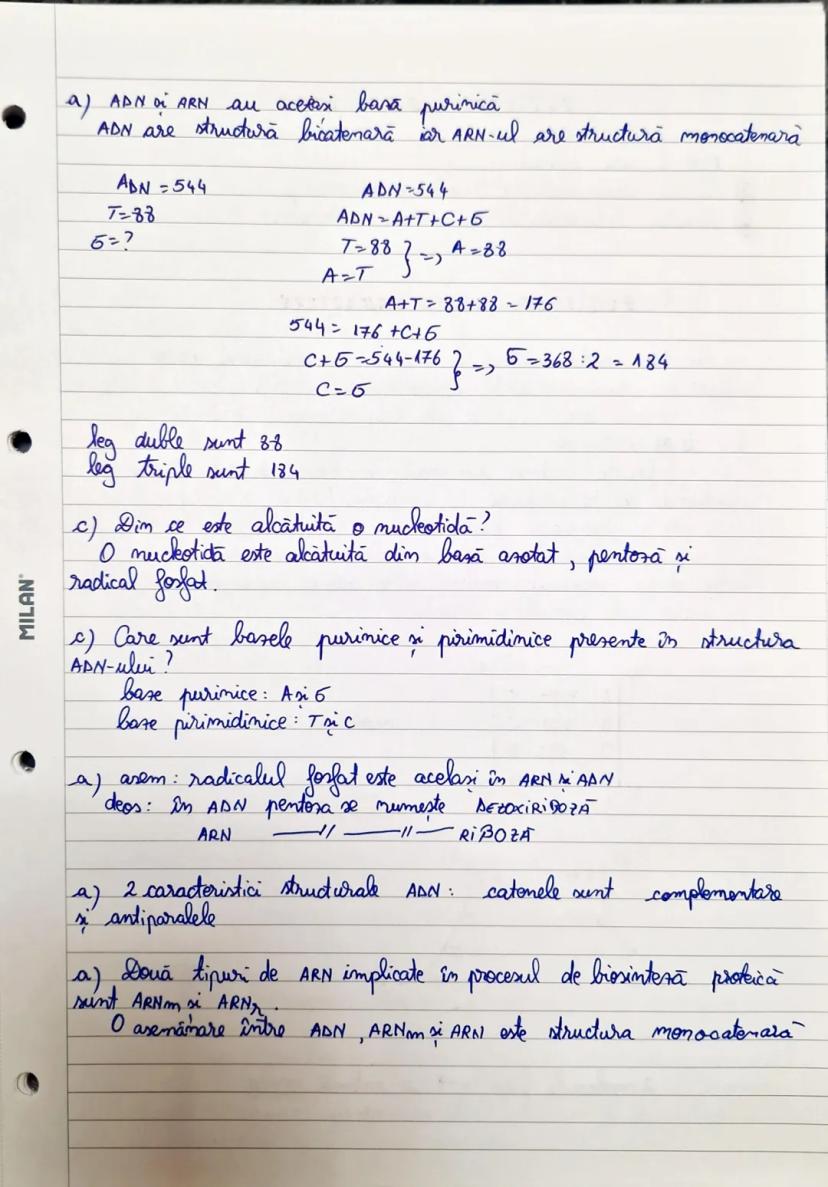 a) ADN și ARN au acetasi bază purinică
ADN are structură bicatenară iar ARN-ul are structură monocatenară
ADN = 544
T = 88
G = ?
ADN = 544
ADN = A+T+C+G
T = 88 } => A = 88
A = T
A+T = 88+88 = 176
544 = 176 + C+G
C+G = 544-176 } => G = 368 : 2 = 184
C = G
leg duble sunt 88
leg triple sunt 184
c) Din ce este alcătuită o nucleotidă?
O nucleotidă este alcătuită din bază azotat, pentoză și
radical fosfat.
c) Care sunt bazele purinice și pirimidinice prezente în structura
ADN-ului?
baze purinice: A și G
baze pirimidinice: T și C
a) asem: radicalul fosfat este același în ARN și ADN
deos: în ADN pentoza se numește DEZOXIRIBOZĂ
ARN —//— —//— RIBOZĂ
a) 2 caracteristici structurale ADN: catenele sunt complementare
și antiparalele
a) Două tipuri de ARN implicate în procesul de biosinteză proteică
sunt ARNm si ARNr.
O asemănare între ADN, ARNm și ARN este structura monocatenară
MILAN